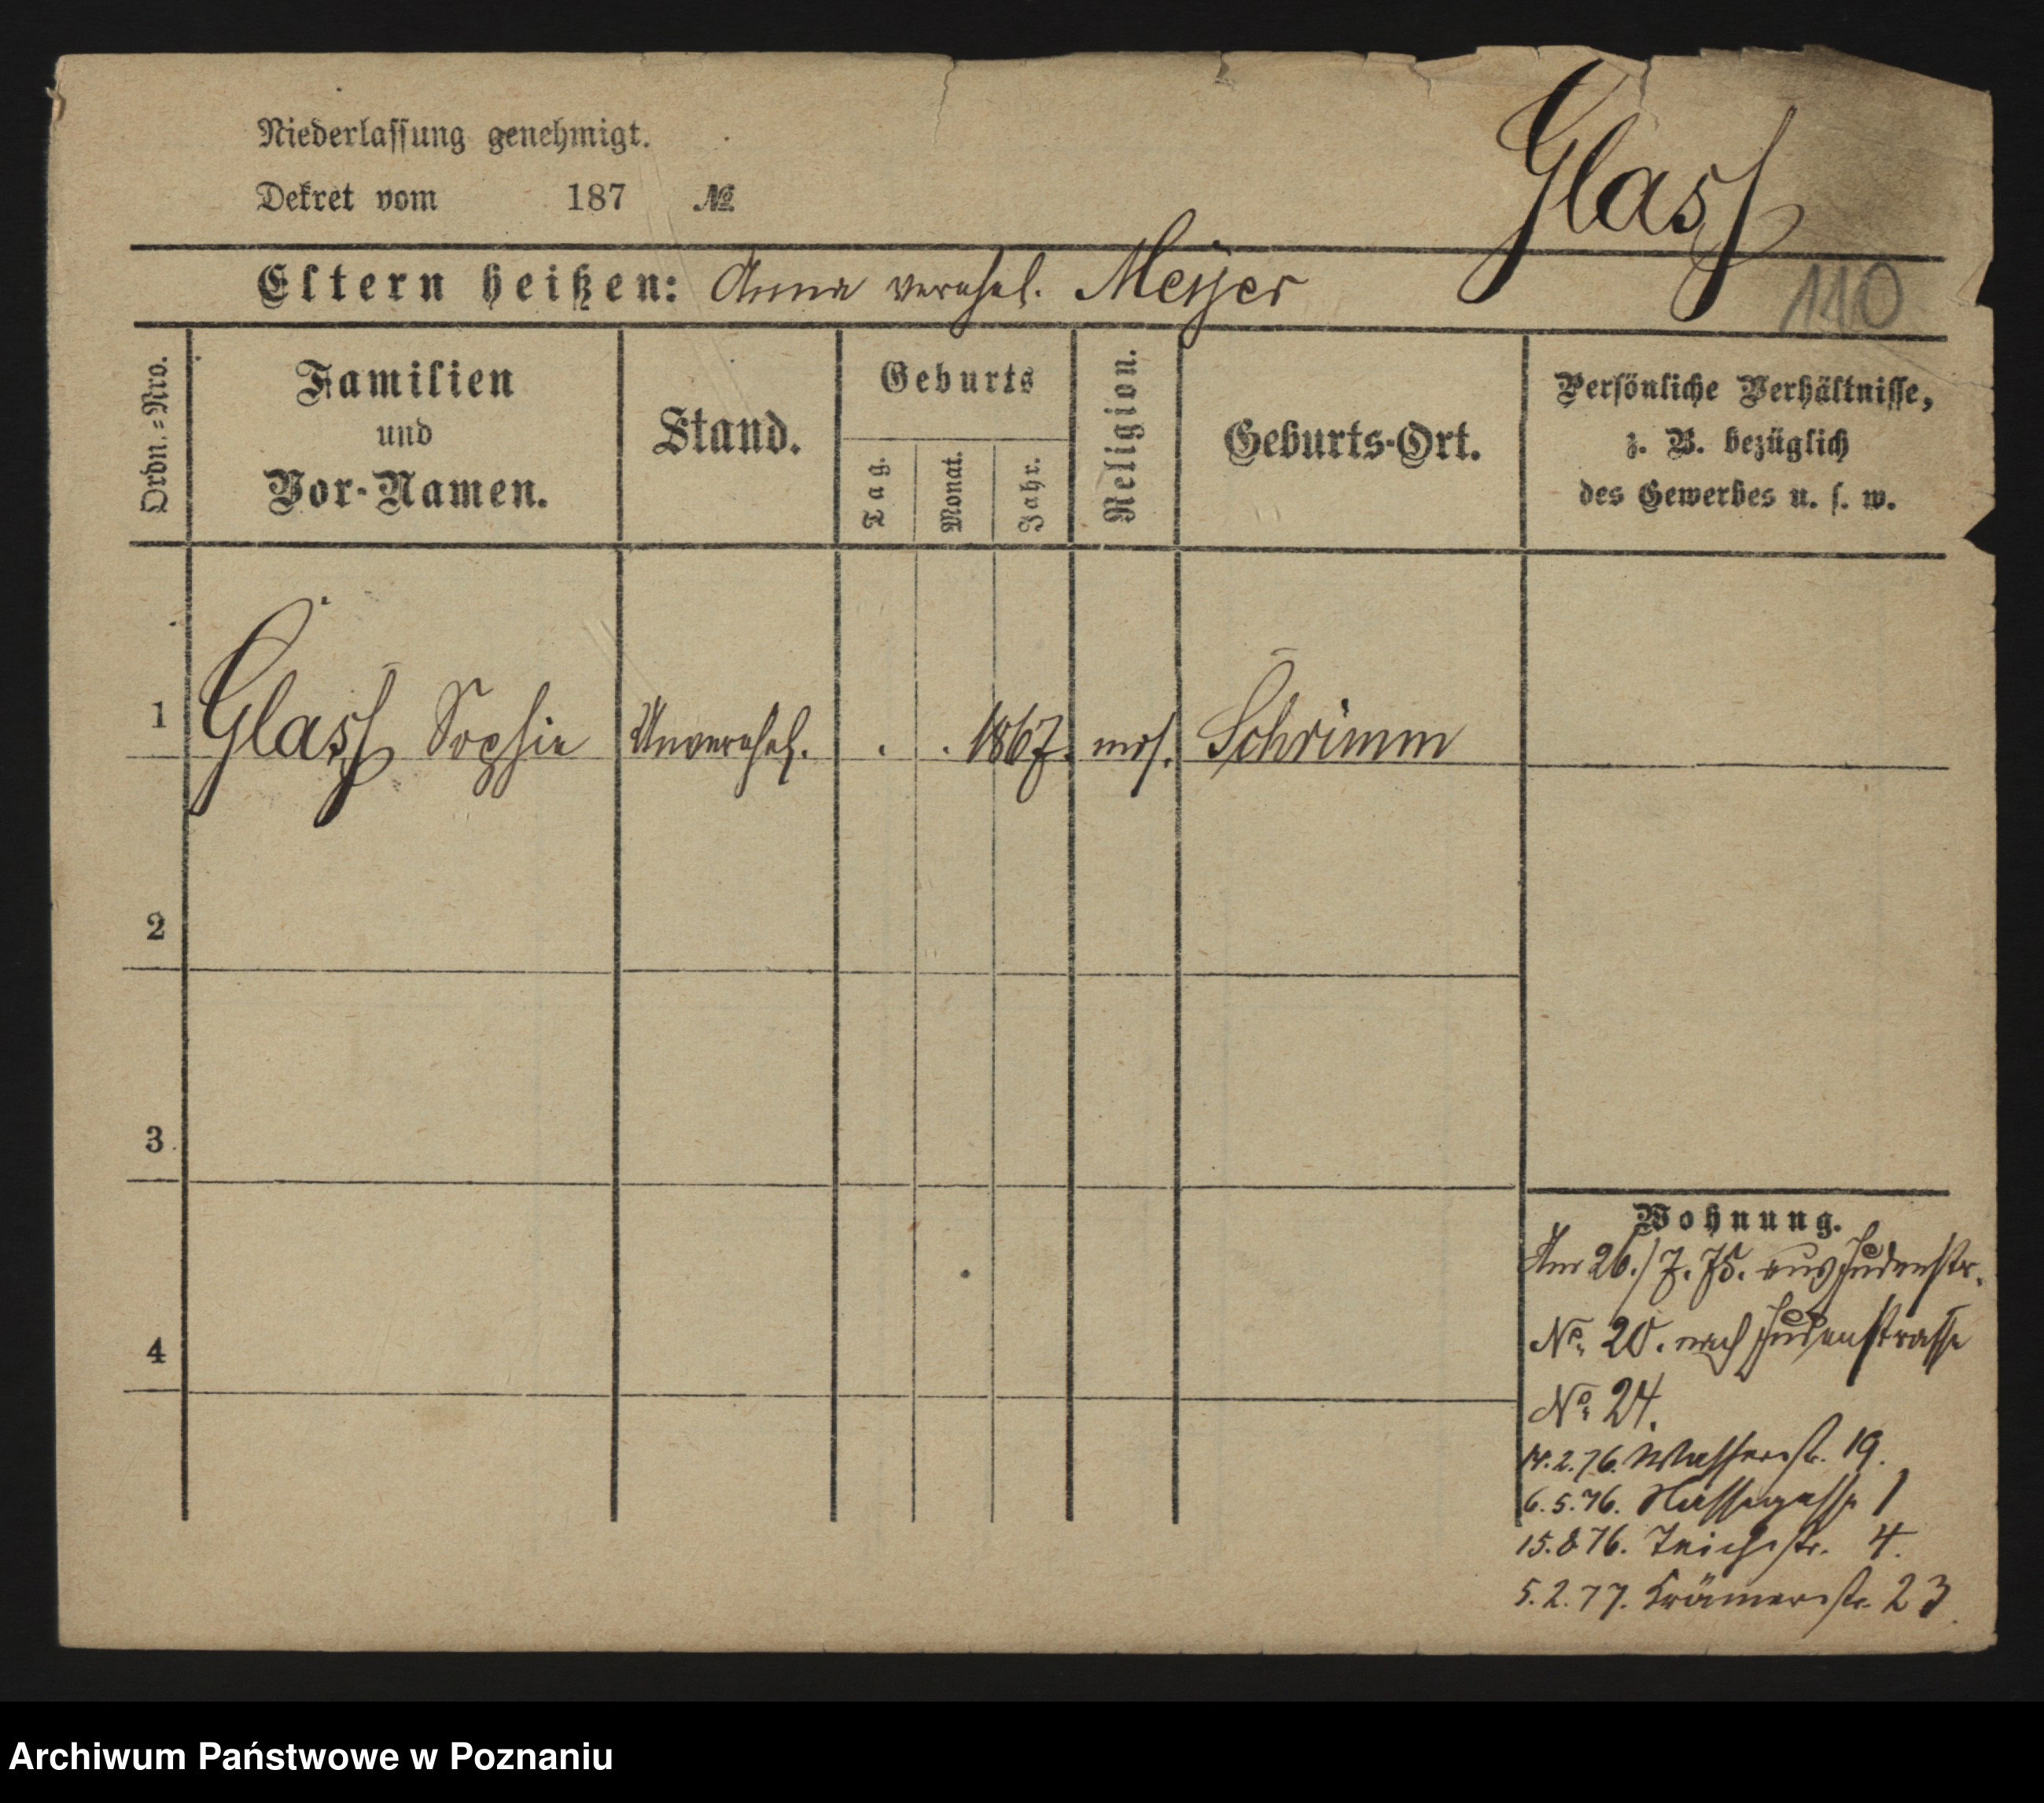 Niederlassung genehmigt.
Dekret vom 187 №
Glass
Eltern heißen: Anna verehel. Meyer
110
Ordn.-Nro.
Familien
und
Vor-Namen.
Stand.
Geburts
Tag.
Monat.
Jahr.
Religion.
Geburts-Ort.
Persönliche Verhältnisse,
z. B. bezüglich
des Gewerbes u. s. w.
1 Glass Sophie Unverehel. . . 1867. mos. Schrimm
2
3
4
Wohnung.
Am 26./7. 75. aus Judenstr.
No. 20. nach Judenstrasse
No. 24.
14.2.76. Wasserstr. 19.
6.5.76. Nassegasse 1
15.8.76. Teichstr. 4.
5.2.77. Krämerstr. 23.
Archiwum Państwowe w Poznaniu